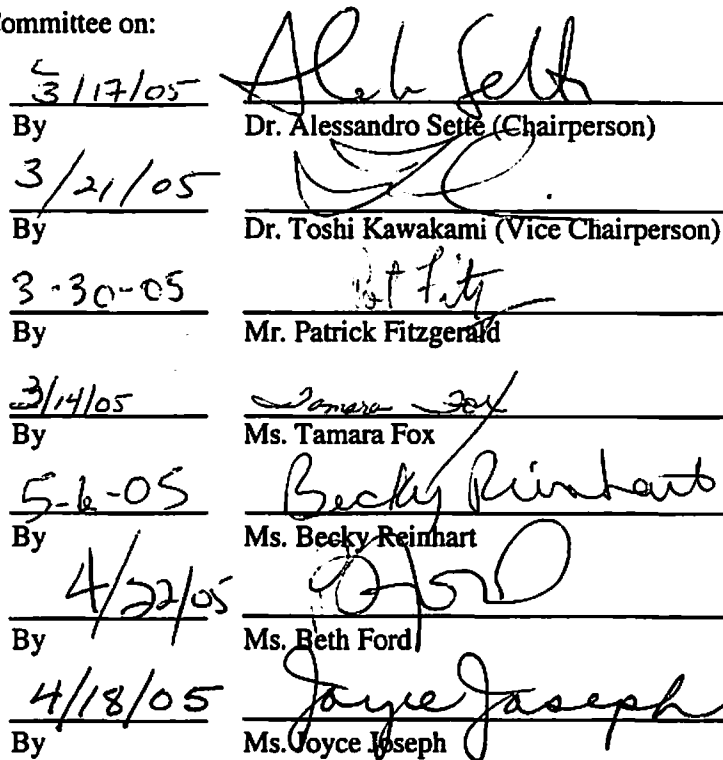 Committee on:
3/17/05
By Dr. Alessandro Sette (Chairperson)
3/21/05
By Dr. Toshi Kawakami (Vice Chairperson)
3-30-05 Pat Fitz
By Mr. Patrick Fitzgerald
3/14/05 Tamara Fox
By Ms. Tamara Fox
5-6-05 Becky Rinehart
By Ms. Becky Reinhart
4/22/05 Ford
By Ms. Beth Ford
4/18/05 Joyce Joseph
By Ms. Joyce Joseph